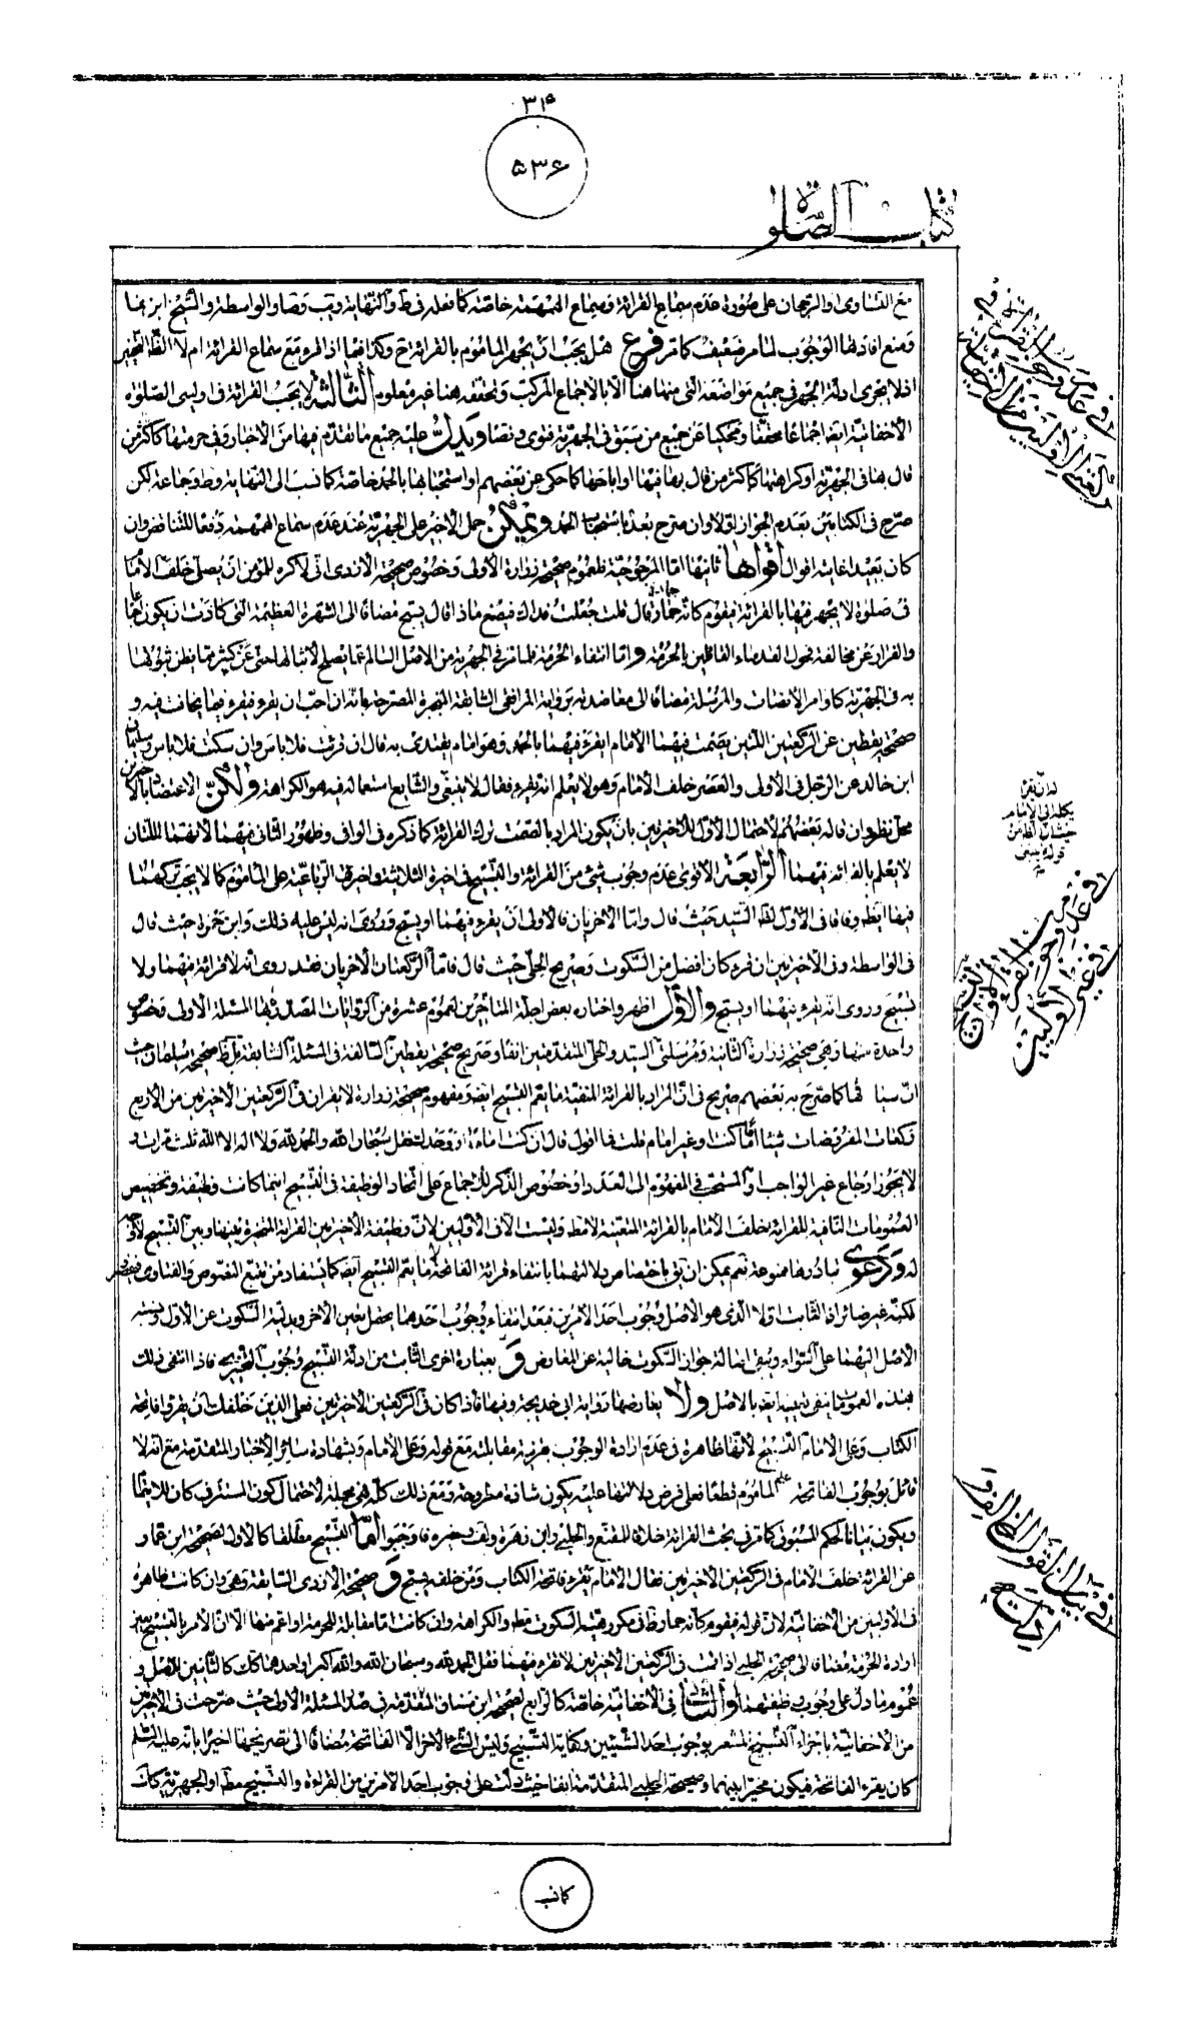 ۳۴
۵۳۶
كتاب الصلوة
مع الفتاوى او الرجحان على صورة عدم سماع القرائة وسماع الهمهمة خاصة كما فعله في ط والنهاية ويب وضا والواسطة والشيخ ابن نما
ومنع افادتها الوجوب للمأمر ضعيف كما مر فرع هل يجب ان يجهر المأموم بالقرائة ح وكذا فيما اذا قرء مع سماع القرائة ام لا الظ التخيير
اذ لا يجرى ادلة الجهر في جميع مواضعه التى منها هنا الا بالاجماع المركب وتحققه هنا غير معلوم الثالثة لا يجب القرائة في اوليى الصلوة
الاخفاتية ايضا اجماعا محققا ومحكيا عن جميع من سبق في الجهرية فتوى ونصا ويدل عليه جميع ما تقدم فيها من الاخبار وفي حرمتها كاكثر من
قال بها في الجهرية او كراهتها كاكثر من قال بها فيها او اباحتها كما حكى عن بعضهم او استحبابها بالحمد خاصة كما نسب الى النهاية وط وجماعة لكن
صرح في الكتابين بعدم الجواز اولا وان صرح بعد باستحباب الحمد ويمكن حمل الاخير على الجهرية عند عدم سماع الهمهمة دفعا للتناقض وان
كان بعيدا غايته اقوال اقواها ثانيها اما المرجوحية فلعموم صحيحة زرارة الاولى وخصوص صحيحة الازدى انى لاكره للمؤمن ان يصلى خلف الامام
في صلوة لا يجهر فيها بالقرائة فيقوم كانه حمار قال قلت جعلت فداك فيصنع ماذا قال يسبح مضافا الى الشهرة العظيمة التى كادت ان يكون اجماعا
والفرار عن مخالفة فحول القدماء القائلين بالحرمة واما انتفاء الحرمة فلما مر في الجهرية من الاصل السالم عما يصلح لاثباتها حتى عن كثير مما يظن ثبوتها
به في الجهرية كاوامر الانصات والمرسلة مضافا الى معاضدته برواية المرافقى السابقة المنجبرة المصرحة بانه ان احب ان يقرء فيقرء فيما يخافت فيه و
صحيحة يقطين عن الركعتين اللتين يصمت فيهما الامام ايقرء فيهما بالحمد وهو امام يقتدى به قال ان قرئت فلا باس وان سكت فلا باس وسليمان
ابن خالد عن الرجل في الاولى والعصر خلف الامام وهو لا يعلم انه يقرء فقال لا ينبغي والشايع استعماله فيه هو الكراهة ولكن الاعتضاد بالاخيرين
محل نظر وان قاله بعضهم لاحتمال الاول للاخيرتين بان يكون المراد بالصمت ترك القرائة كما ذكره في الوافى وظهور الثانى فيهما لانهما اللتان
لا يعلم بالقرائة فيهما الرابعة الاقوى عدم وجوب شئ من القرائة والتسبيح في اخيرة الثلاثية واخيرتى الرباعية على المأموم كما لا يجب تركهما
فيها ايضا وفاقا في الاول لظ السيد حيث قال واما الاخريان فالاولى ان يقرء فيهما او يسبح وروى انه ليس عليه ذلك وابن حمزة حيث قال
في الواسطة وفي الاخيرتين ان قرء كان افضل من السكوت وصريح الحلى حيث قال فاما الركعتان الاخريان فقد روى انه لا قرائة فيهما ولا
تسبيح وروى انه يقرء فيهما او يسبح والاول اظهر واختاره بعض اجلة المتاخرين لعموم عشرة من الروايات لمصدر بها المسئلة الاولى وخصوص
واحدة منها وهى صحيحة زرارة الثانية ومرسلتى السيد والحلى المتقدمتين انفا وصريح صحيحة يقطين السالفة في المسئلة السابقة بل ظ صحيحة سليمان حيث
ان سياقها كما صرح به بعضهم صريح في ان المراد بالقرائة المنفية ما يعم التسبيح ايضا ومفهوم صحيحة زرارة لا يقران في الركعتين الاخيرتين من الاربع
ركعات المفروضات شيئا اماما كنت او غير امام قلت فما اقول قال ان كنت اماما او وحدك فقل سبحان الله والحمد لله ولا اله الا الله ثلث مرات و
لا يجوز ارجاع غير الواجب والمستحب في المفهوم الى العدد او خصوص الذكر للاجماع على اتحاد الوظيفة في التسبيح اينما كانت وظيفة وتخصيص
العمومات النافية للقرائة خلف الامام بالقرائة المتعينة لا مط وليست الا في الاوليين لان وظيفة الاخيرتين القرائة المخيرة بينها وبين التسبيح لا وجه
له ودعوى تبادرها ممنوعة نعم يمكن ان يق باختصاص دلالتهما بانتفاء قرائة الفاتحة لا ما يعم التسبيح ايضا كما يستفاد من تتبع النصوص والفتاوى
لكنه غير ضائر اذ الثابت اولا الذى هو الاصل وجوب احد الامرين فبعد انتفاء وجوب احدهما يحصل تعين الاخر وبدلية السكوت عن الاول ونسبة
الاصل اليهما على السواء ويبقى اصالة جواز السكوت خالية عن المعارض و بعبارة اخرى الثابت من ادلة التسبيح وجوب التخيير فاذا انتفى ذلك
بهذه العمومات بقى تعيينه ايضا بالاصل ولا يعارضها رواية ابى خديجة وفيها فاذا كان في الركعتين الاخيرتين فعلى الذين خلفك ان يقرؤا فاتحة
الكتاب وعلى الامام التسبيح لانها ظاهرة في عدم ارادة الوجوب بقرينة مقابلته مع قوله وعلى الامام وبشهادة سائر الاخبار المتقدمة مع انه لا
قائل بوجوب الفاتحة على المأموم قطعا فعلى فرض دلالتها عليه يكون شاذة مطروحة ومع ذلك كله هى مجملة لاحتمال كون المستتر في كان للايتمام
ويكون بيانا لحكم المسبوق كما مر في بحث القرائة خلافا للمقنع والحلبى وابن زهرة ولف وغيره فاوجبوا اما التسبيح مطلقا كالاول لصحيحة ابن عمار
عن القرائة خلف الامام في الركعتين الاخيرتين فقال الامام يقرء فاتحة الكتاب ومن خلفه يسبح و صحيحة الازدى السابقة وهى وان كانت ظاهرة
في الاوليين من الاخفاتية لان قوله فيقوم كانه حمار ظ في مكروهية السكوت مط والكراهة وان كانت مقابلة للحرمة او اعم منها الا ان الامر بالتسبيح يعين
ارادة الحرمة مضافا الى صحيحة الحلبى اذا قمت في الركعتين الاخيرتين لا تقرء فيهما فقل الحمد لله وسبحان الله والله اكبر او احدهما كك كالثانيين للاصل و
عموم ما دل على وجوب وظيفتهما او الثانى في الاخفاتية خاصة كالرابع لصحيحة ابن سنان المتقدمة في صدر المسئلة الاولى حيث صرحت في الاخيرتين
من الاخفاتية باجزاء التسبيح المشعر بوجوب احد الشيئين وكفاية التسبيح وليس الشئ الاخر الا الفاتحة مضافا الى تصريحها اخيرا بانه عليه السلم
كان يقرء الفاتحة فيكون مخيرا بينهما وصحيحة الحلبى المتقدمة انفا حيث دلت على وجوب احد الامرين من القراءة والتسبيح مط او الجهرية كان
في عدم وجوب القرائة في
في عدم وجوب القرائة او التسبيح
في غير الاوليين
كاتب